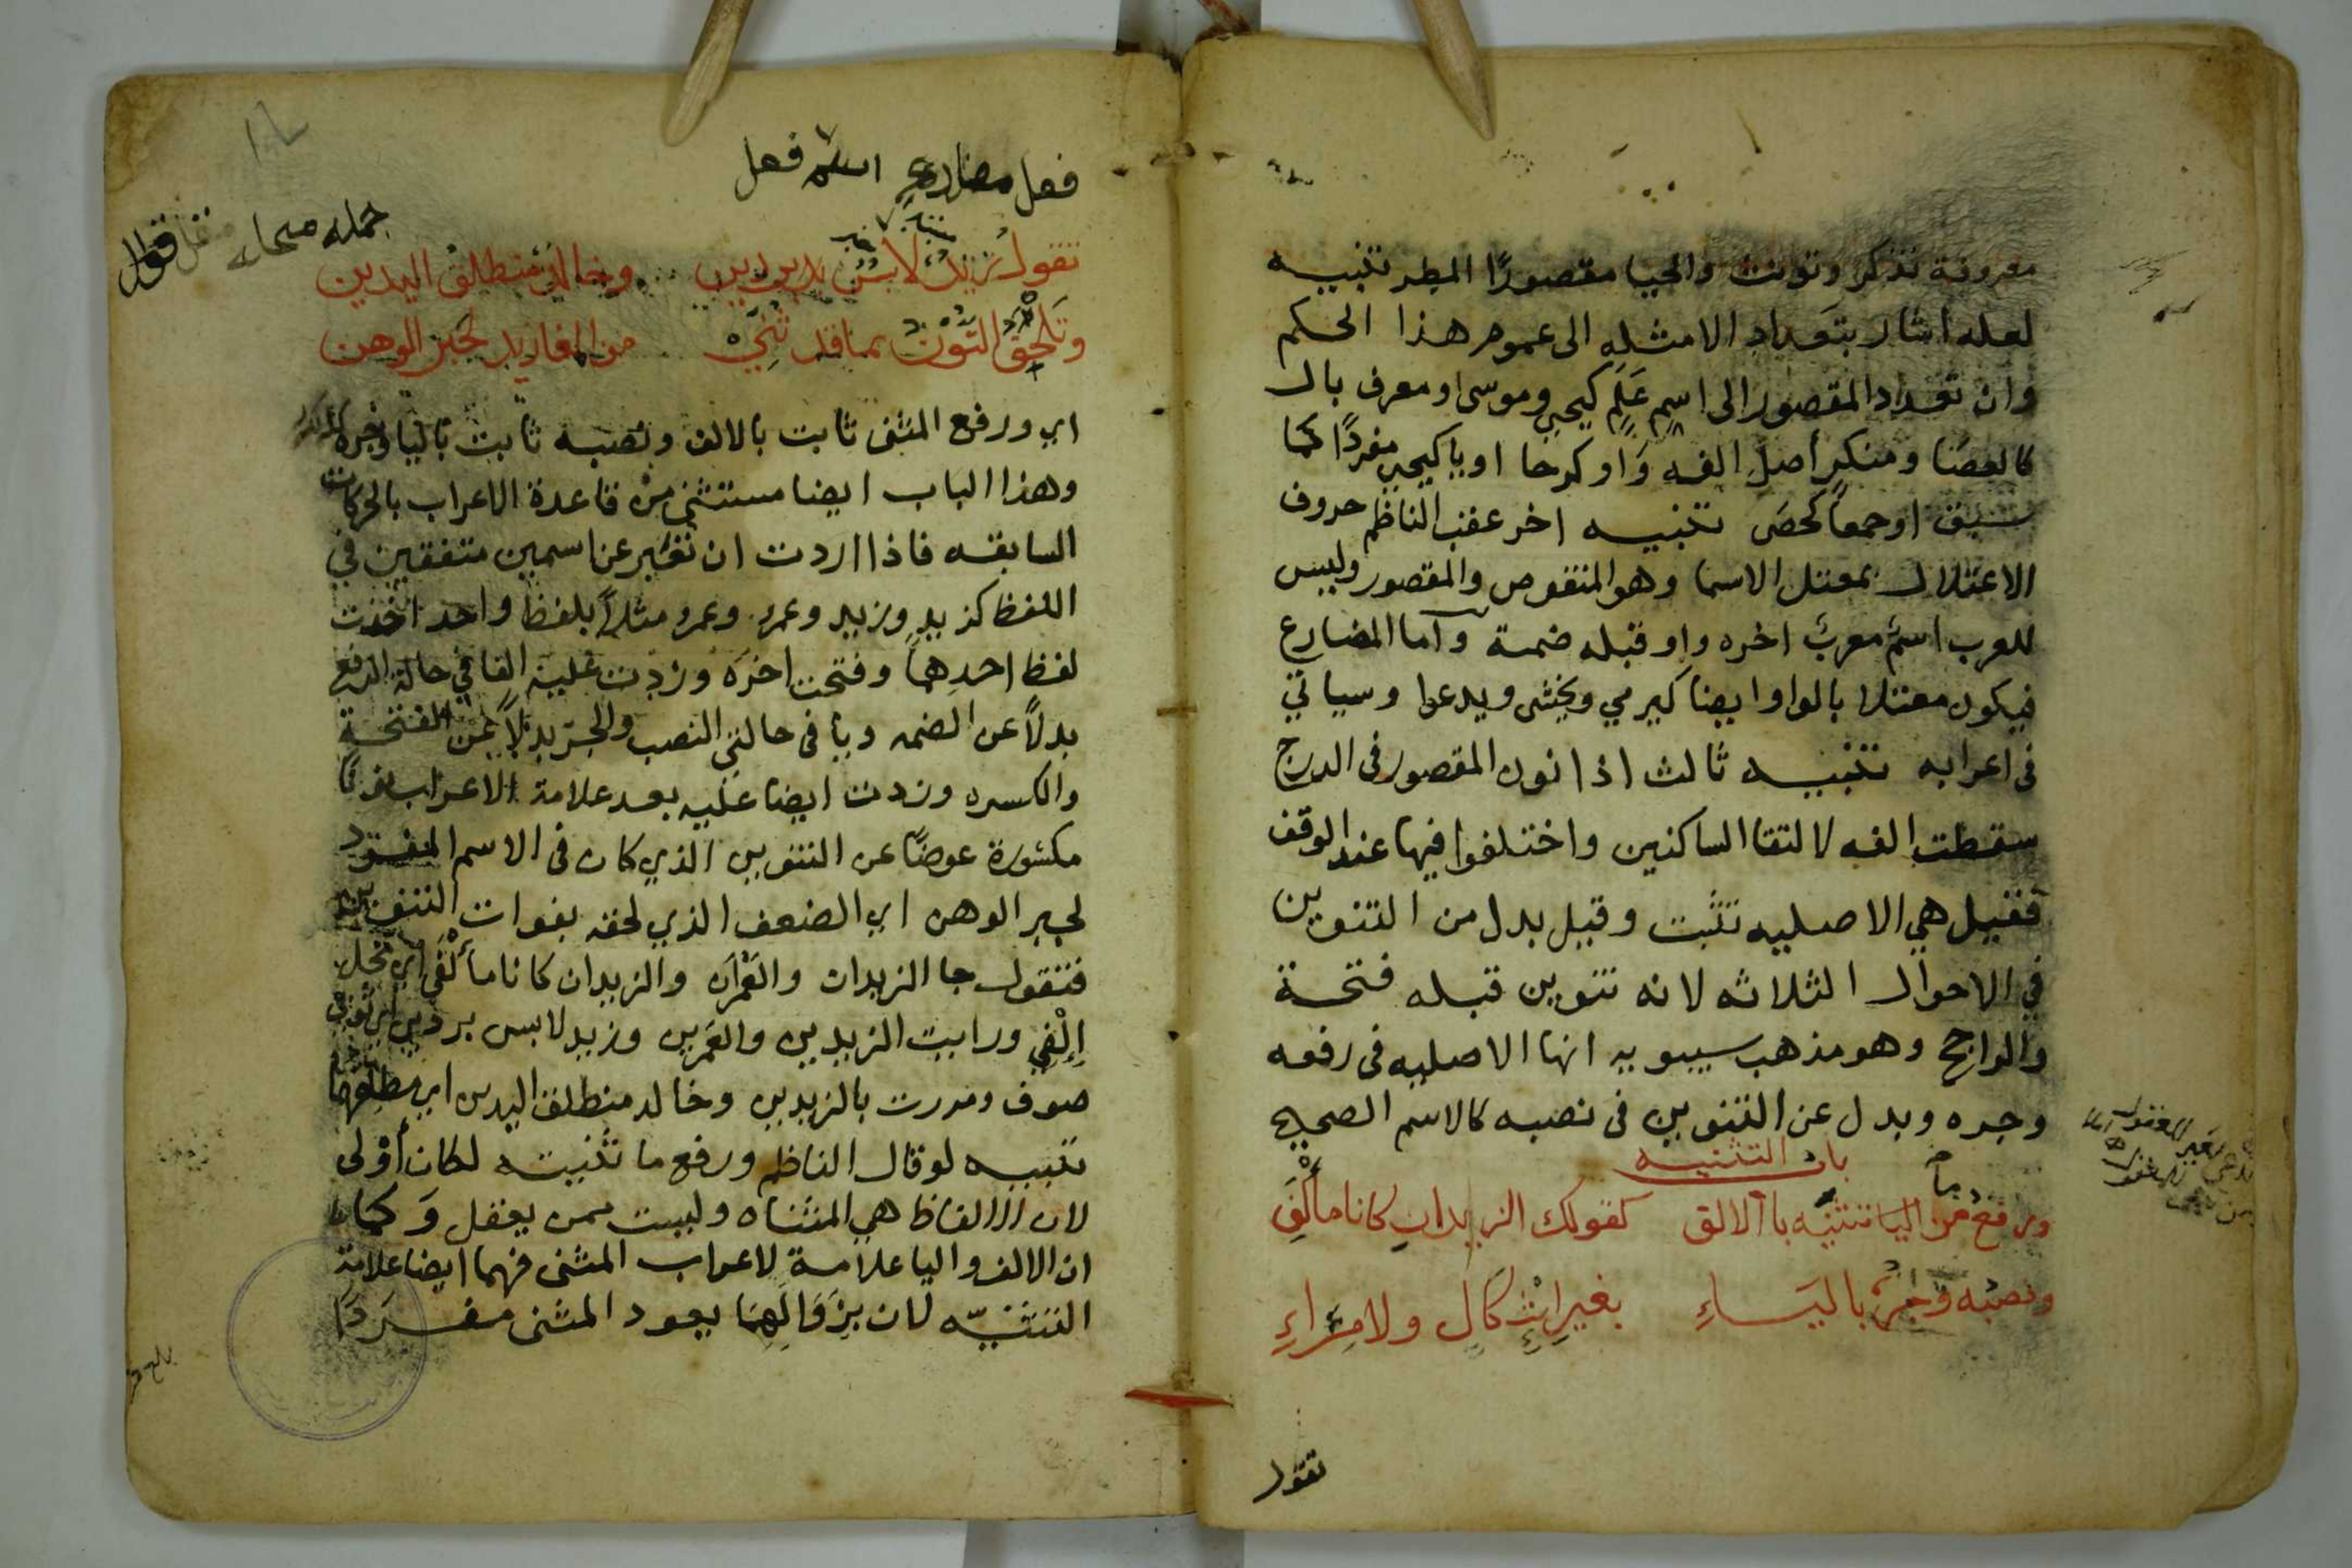 معروفة تذكر وتونث والحيا مقصورًا المطر تنبيه
لعله اشار بتعداد الامثله الى عموم هذا الحكم
وان تعداد المقصور الى اسمٍ عَلَمٍ كيحيى وموسى او معرف بال
كالعصَا ومنكرٍ أصل الفه وَاو كرحا او يا كيحيى مفردًا كما
سبق او جمعاً كحصَى تنبيه اخر عقب الناظم حروف
الاعتلال بمعتل الاسما وهو المنقوص والمقصور وليس
للعرب اسمٌ معربٌ اخره واو قبله ضمة وآما المضارع
فيكون معتلا بالواو ايضا كيرمي ويخشى ويدعوا وسياتي
فى اعرابه تنبيه ثالث اذا نون المقصور فى الدرج
سقطت الفه لالتقا الساكنين واختلفوا فيها عند الوقف
فقيل هي الاصليه تثبت وقيل بدل من التنوين
في الاحوال الثلاثه لانه تنوين قبله فتحة
والراجح وهو مذهب سيبويه انها الاصليه فى رفعه
وجره وبدل عن التنوين فى نصبه كالاسم الصحيح
باب التثنيه
ورفع من اليا تثنيه باالالف كقولك الزيدانِ كانا مألَفِي
ونصبُه وَجَرُّه باليَاءِ بغيرِ اشكَالٍ ولا مِرَاءِ
تقول
فعل مضارع اسم فعل
جمله
تقول زيدٌ لابسٌ بردين وخالدٌ منطلقُ اليدين
وتَلحَقُ النّونُ بما قد ثُنِّيْ من المفاريد لجبر الوهن
اي ورفع المثنى ثابت بالالف ونصبه ثابت باليا وجره كذلك
وهذا الباب ايضا مستثنى مِنْ قاعدة الاعراب بالحركات
السابقه فاذا اردت ان تعَبِّر عن اسمين متفقين في
اللفظ كزيدٍ وزيد وعمرو وعمرو مثلاً بلفظ واحد اخذت
لفظ احدِهما وفتحت اخرَه وزدت عليه الفا في حالة الرفع
بدلاً عن الضمه ويا فى حالتي النصب والجرّ بدلاً عن الفتحة
والكسره وزدت ايضا عليه بعد علامة الاعراب نونًا
مكسُورة عوضًا عن التنوين الذي كان فى الاسم المفرد
لجبر الوهن اي الضعف الذي لحقه بفوات التنوين
فتقول جا الزيدان والعَمْرَان والزيدان كانا مأْلَفي اي محل
اِلْفِي ورايت الزيدين والعَمرين وزيد لابس بردين اي ثوبي
صوف ومررت بالزيدين وخالد منطلق اليدين اي مطلقهما
تنبيه لو قال الناظم ورفع ما ثنيته لكان أوْلى
لان الالفاظ هي المثناه وليست ممن يعقل وَكما
ان الالف واليا علامةٍ لاعراب المثنى فهما ايضا علامة
التثنيّه لان بِزَوَالِهِمَا يعود المثنى مفرَدًا